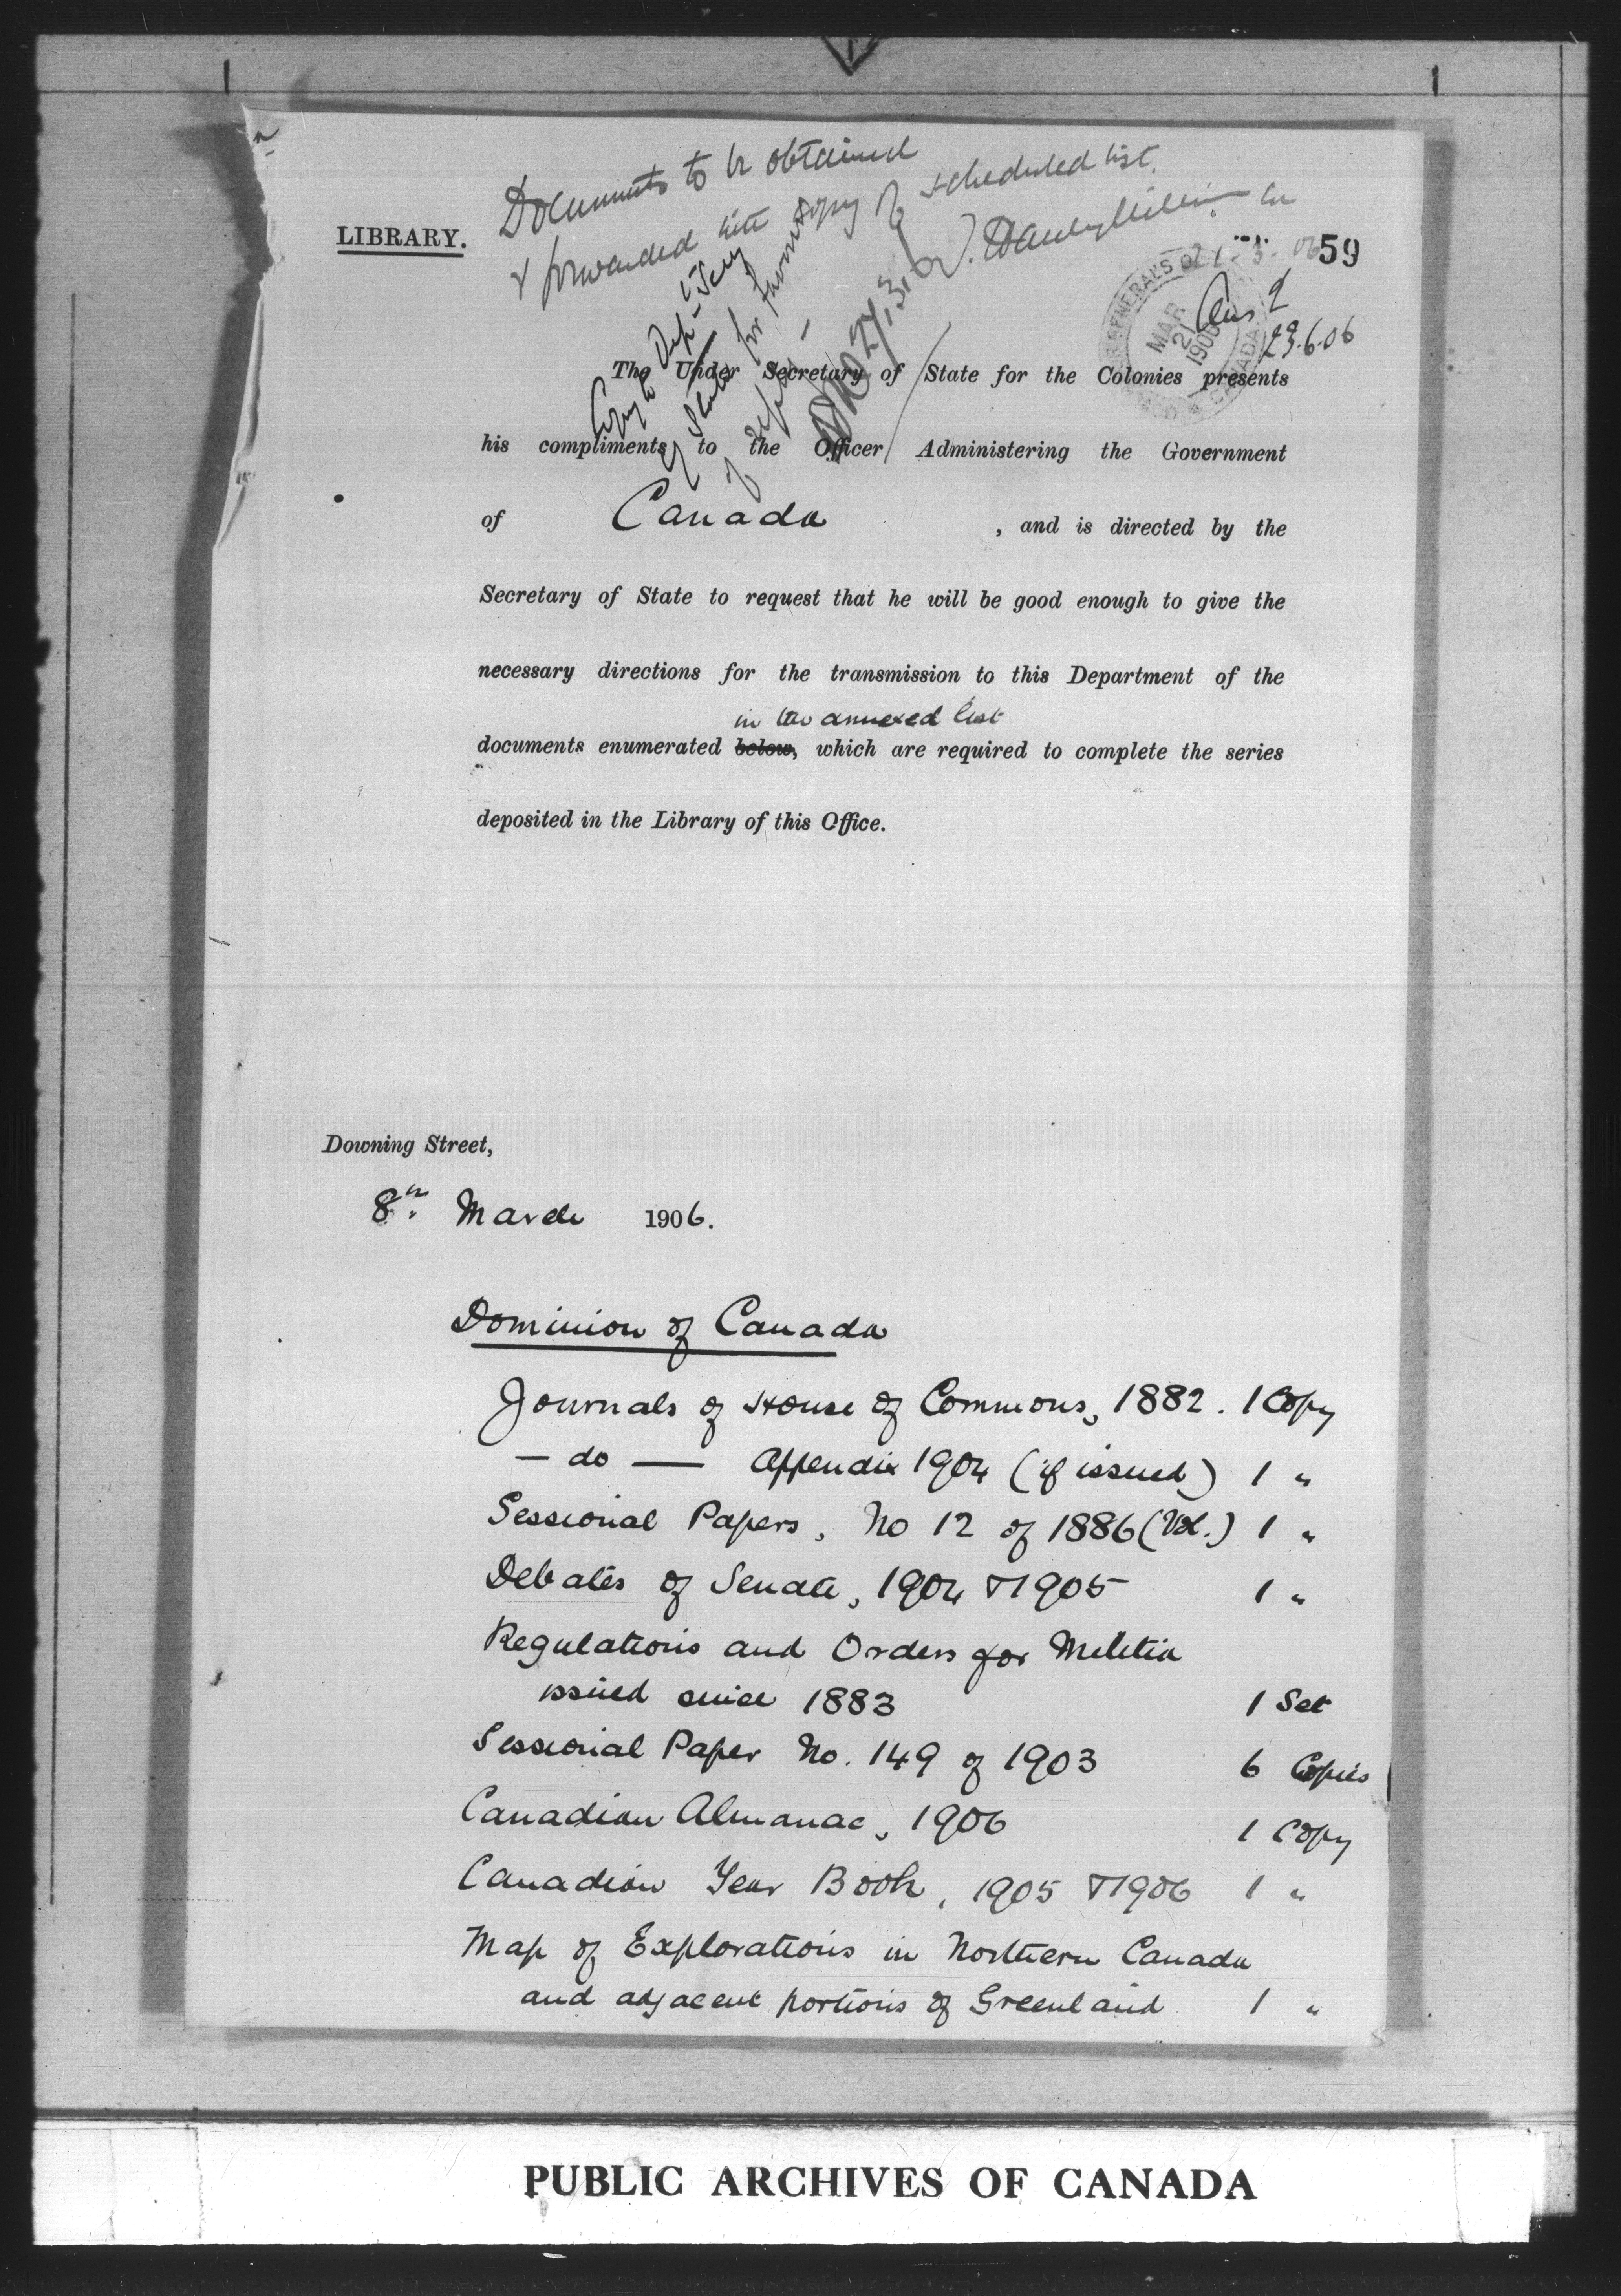 Documents to be obtained
& forwarded with copy of scheduled list.
LIBRARY.
59
Copy to Dep-Secy
of State for favour
of report –
27.3.06
GENERAL'S
MAR
21
1906
CANADA
Ans d
23.6.06
The Under Secretary of State for the Colonies presents
his compliments to the Officer Administering the Government
of Canada , and is directed by the
Secretary of State to request that he will be good enough to give the
necessary directions for the transmission to this Department of the
in the annexed list
documents enumerated below, which are required to complete the series
deposited in the Library of this Office.
Downing Street,
8th March 1906.
Dominion of Canada
Journals of House of Commons, 1882. 1 Copy
— do — Appendix 1904 (if issued) 1 "
Sessional Papers, No 12 of 1886 (Vol.) 1 "
Debates of Senate, 1904 & 1905 1 "
Regulations and Orders for Militia
issued since 1883 1 Set
Sessional Paper No. 149 of 1903 6 Copies
Canadian Almanac, 1906 1 Copy
Canadian Year Book, 1905 & 1906 1 "
Map of Explorations in Northern Canada
and adjacent portions of Greenland 1 "
PUBLIC ARCHIVES OF CANADA